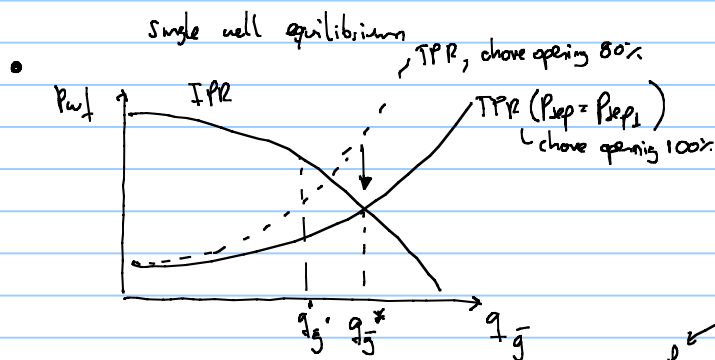 Single well equilibrium
TPR, choke opening 80%
Pwf
IPR
TPR (Psep = Psep1)
choke opening 100%
qg'
qg*
qg